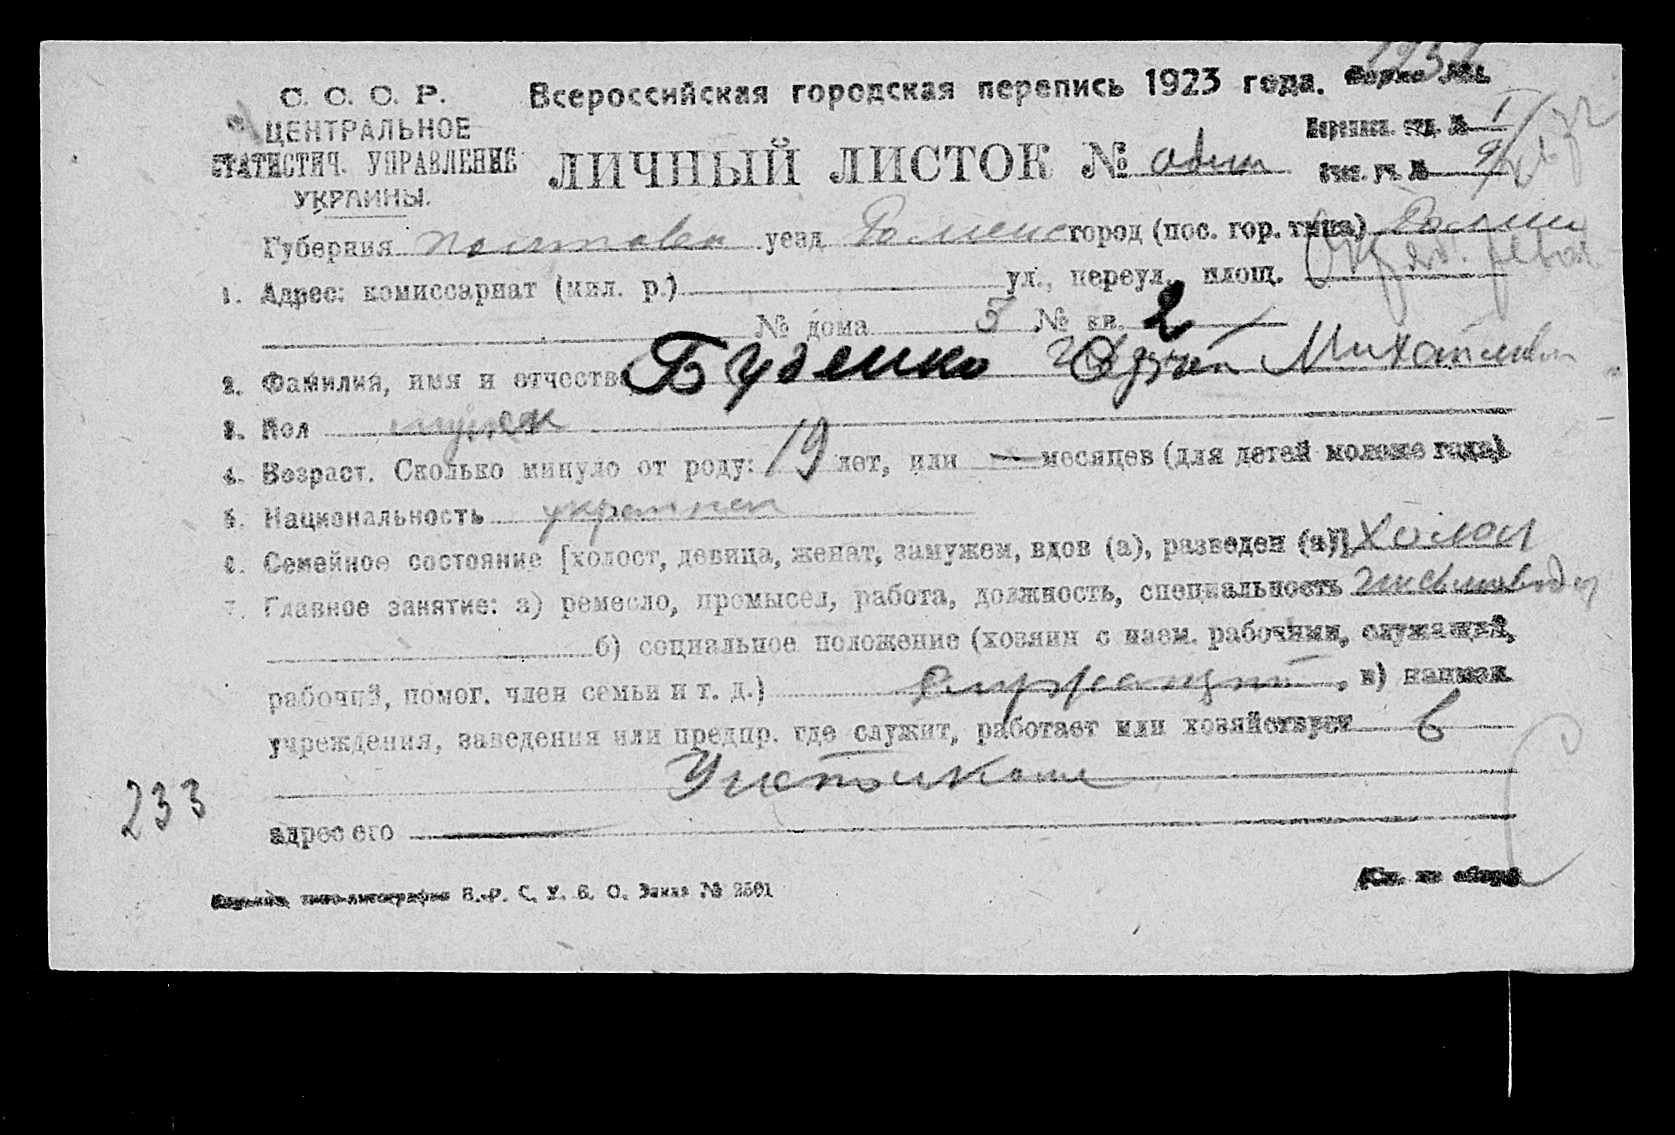 С. С. С. Р.
ЦЕНТРАЛЬНОЕ
СТАТИСТИЧ. УПРАВЛЕНИЕ
УКРАИНЫ.
Всероссийская городская перепись 1923 года. Форма №
ЛИЧНЫЙ ЛИСТОК № один
Переписн. отд. № I
Счет. уч. № 9
Губерния Полтавск уезд Роменс город (пос. гор. типа) Ромны
1. Адрес: комиссариат (мил. р.) ул., переул., площ.
№ дома 5 № кв. 2
2. Фамилия, имя и отчество Буденко Михайлович
3. Пол мужск
4. Возраст. Сколько минуло от роду: 19 лет, или — месяцев (для детей моложе года)
5. Национальность украинец
6. Семейное состояние [холост, девица, женат, замужем, вдов (а), разведен (а)] холост
7. Главное занятие: а) ремесло, промысел, работа, должность, специальность письмоводит
б) социальное положение (хозяин с наем. рабочими, служащий,
рабочий, помог. член семьи и т. д.) служащий, в) назван.
учреждения, заведения или предпр. где служит, работает или хозяйствует в
адрес его —
233
типо-литография В.-Р. С. У. В. О. Заказ № 2501
(См. на обороте